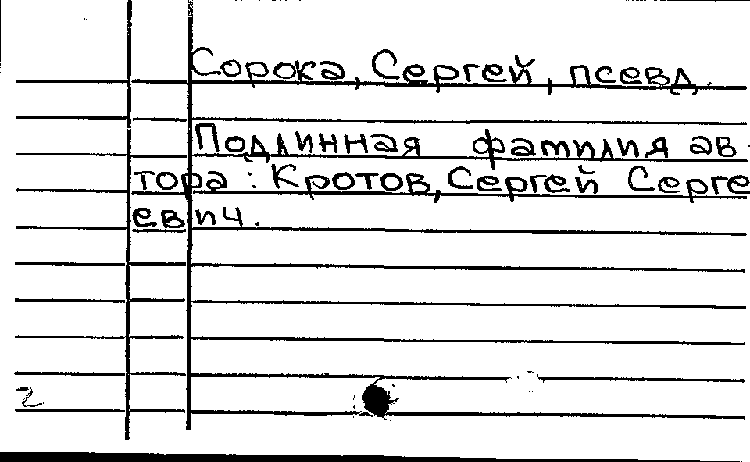 Сорока, Сергей, псевд.
Подлинная фамилия ав-
тора: Кротов, Сергей Серге
евич.
2